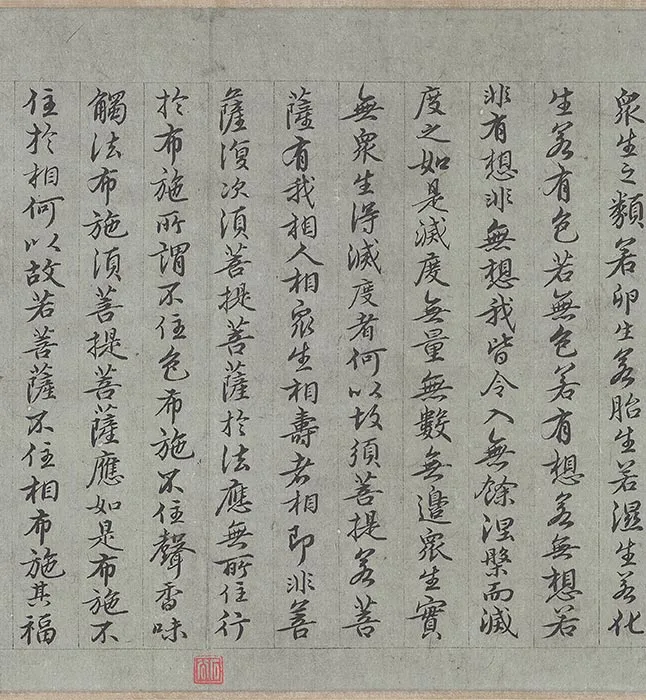 眾生之類若卵生若胎生若濕生若化
生若有色若無色若有想若無想若
非有想非無想我皆令入無餘涅槃而滅
度之如是滅度無量無數無邊眾生實
無眾生得滅度者何以故須菩提若菩
薩有我相人相眾生相壽者相即非菩
薩復次須菩提菩薩於法應無所住行
於布施所謂不住色布施不住聲香味
觸法布施須菩提菩薩應如是布施不
住於相何以故若菩薩不住相布施其福